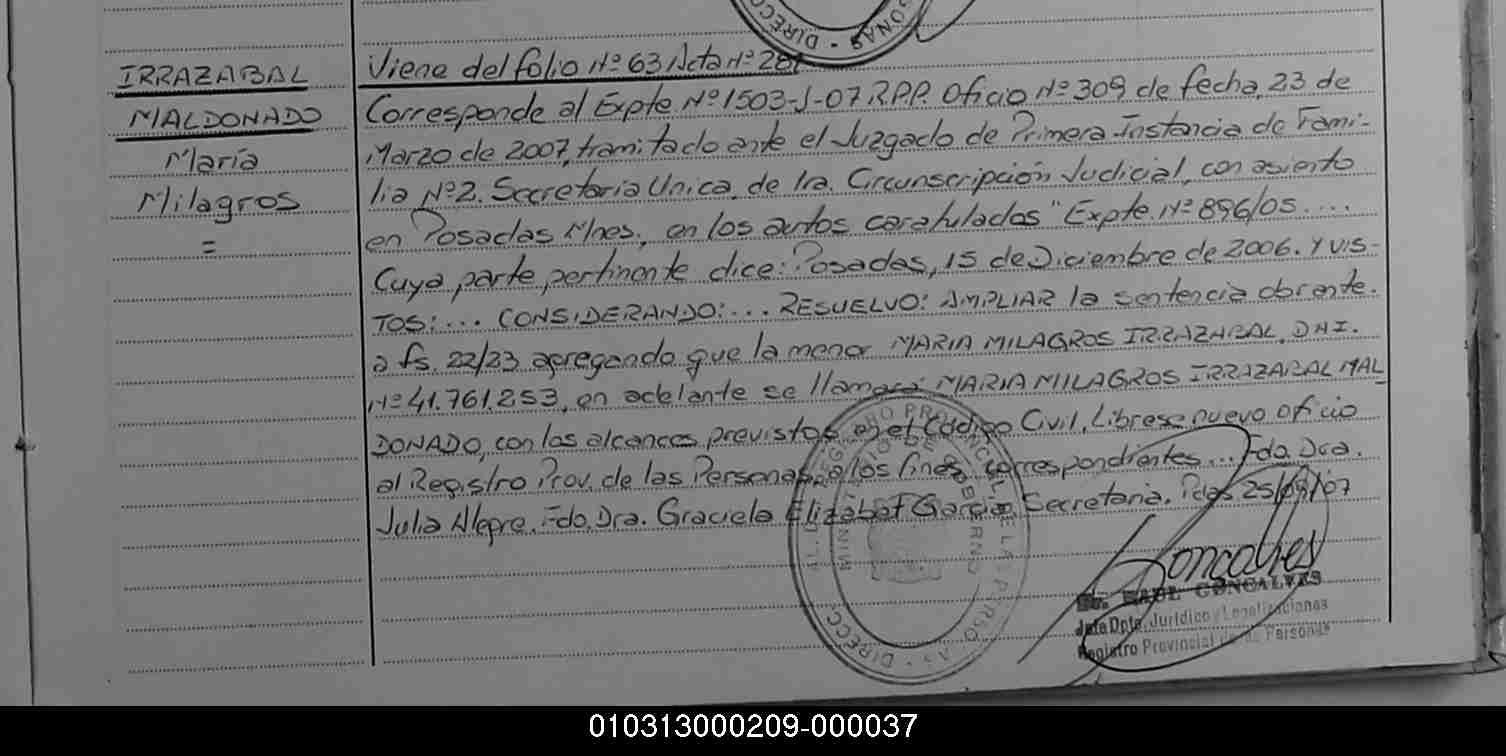 IRRAZABAL
MALDONADO
María
Milagros
=
Viene del folio Nº 63 Acta Nº 281
Corresponde al Expte Nº 1503-J-07 R.P.P. Oficio Nº 309 de fecha, 23 de
Marzo de 2007, tramitado ante el Juzgado de Primera Instancia de Fami-
lia Nº 2. Secretaria Unica, de 1ra. Circunscripción Judicial, con asiento
en Posadas Mnes, en los autos caratulados "Expte. Nº 896/05....
Cuya parte pertinente dice: Posadas, 15 de Diciembre de 2006. Y VIS-
TOS:... CONSIDERANDO:... RESUELVO: AMPLIAR la sentencia obrante.
a fs. 22/23 agregando que la menor MARIA MILAGROS IRRAZABAL, DNI.
Nº 41.761.253, en adelante se llamará MARIA MILAGROS IRRAZABAL MAL
DONADO, con los alcances previstos en el Código Civil. Librese nuevo oficio
al Registro Prov. de las Personas, a los fines correspondientes... Fdo. Dra.
Julia Alegre. Fdo. Dra. Graciela Elizabet Garcia, Secretaria. Pdas 25/09/07
Goncalves
Dr. RAUL GONCALVES
Jefe Dpto. Jurídico y Legalizaciones
Registro Provincial de las Personas
010313000209-000037